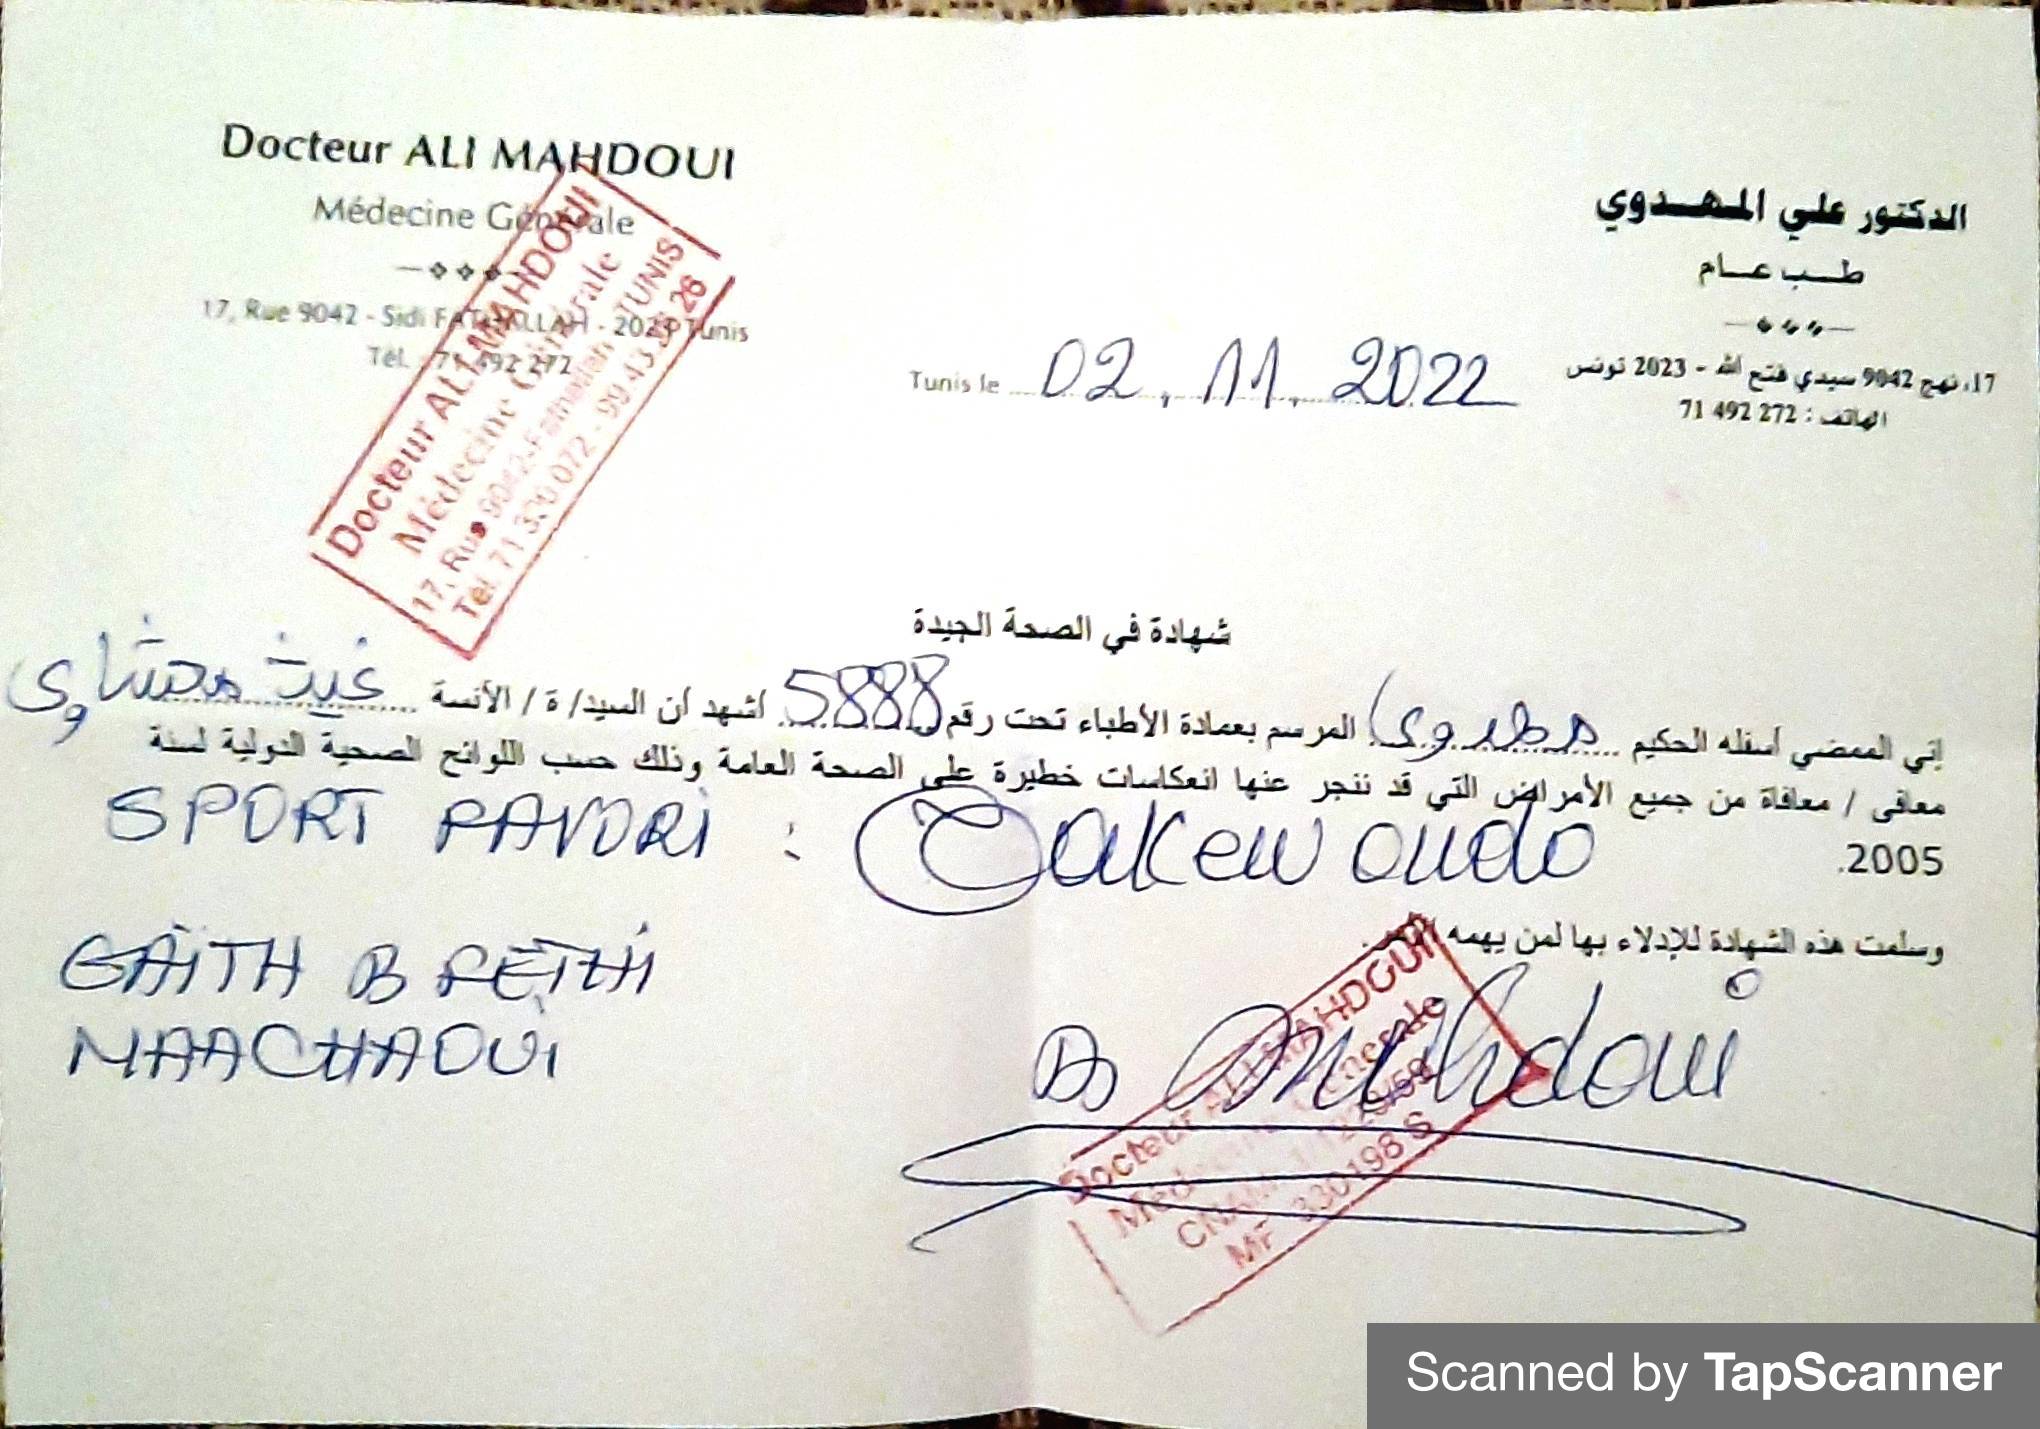 Docteur ALI MAHDOUI
Médecine Générale
17, Rue 9042 - Sidi FATHALLAH - 2023 Tunis
Tél. : 71 492 272
الدكتور علي المهدوي
طب عام
17، نهج 9042 سيدي فتح الله - 2023 تونس
الهاتف : 272 492 71
Tunis le 02, 11, 2022
Docteur ALI MAHDOUI
Médecine Générale
17, Rue 9042-Fathallah - TUNIS
Tél 71 320 072 - 99.43 26
شهادة في الصحة الجيدة
إني الممضي أسفله الحكيم مهدوي المرسم بعمادة الأطباء تحت رقم 5888 اشهد ان السيد/ ة / الأنسة غيث معشاوي
معافى / معافاة من جميع الأمراض التي قد ننجر عنها انعكاسات خطيرة على الصحة العامة وذلك حسب اللوائح الصحية الدولية لسنة
2005.
SPORT FAVORI : Takewondo
وسلمت هذه الشهادة للإدلاء بها لمن يهمه
GAÏTH B FETHI
MAACHAOUI
Dr Mahdoui
Docteur ALI MAHDOUI
Médecine Générale
CNAM
MF 330198 S
Scanned by TapScanner